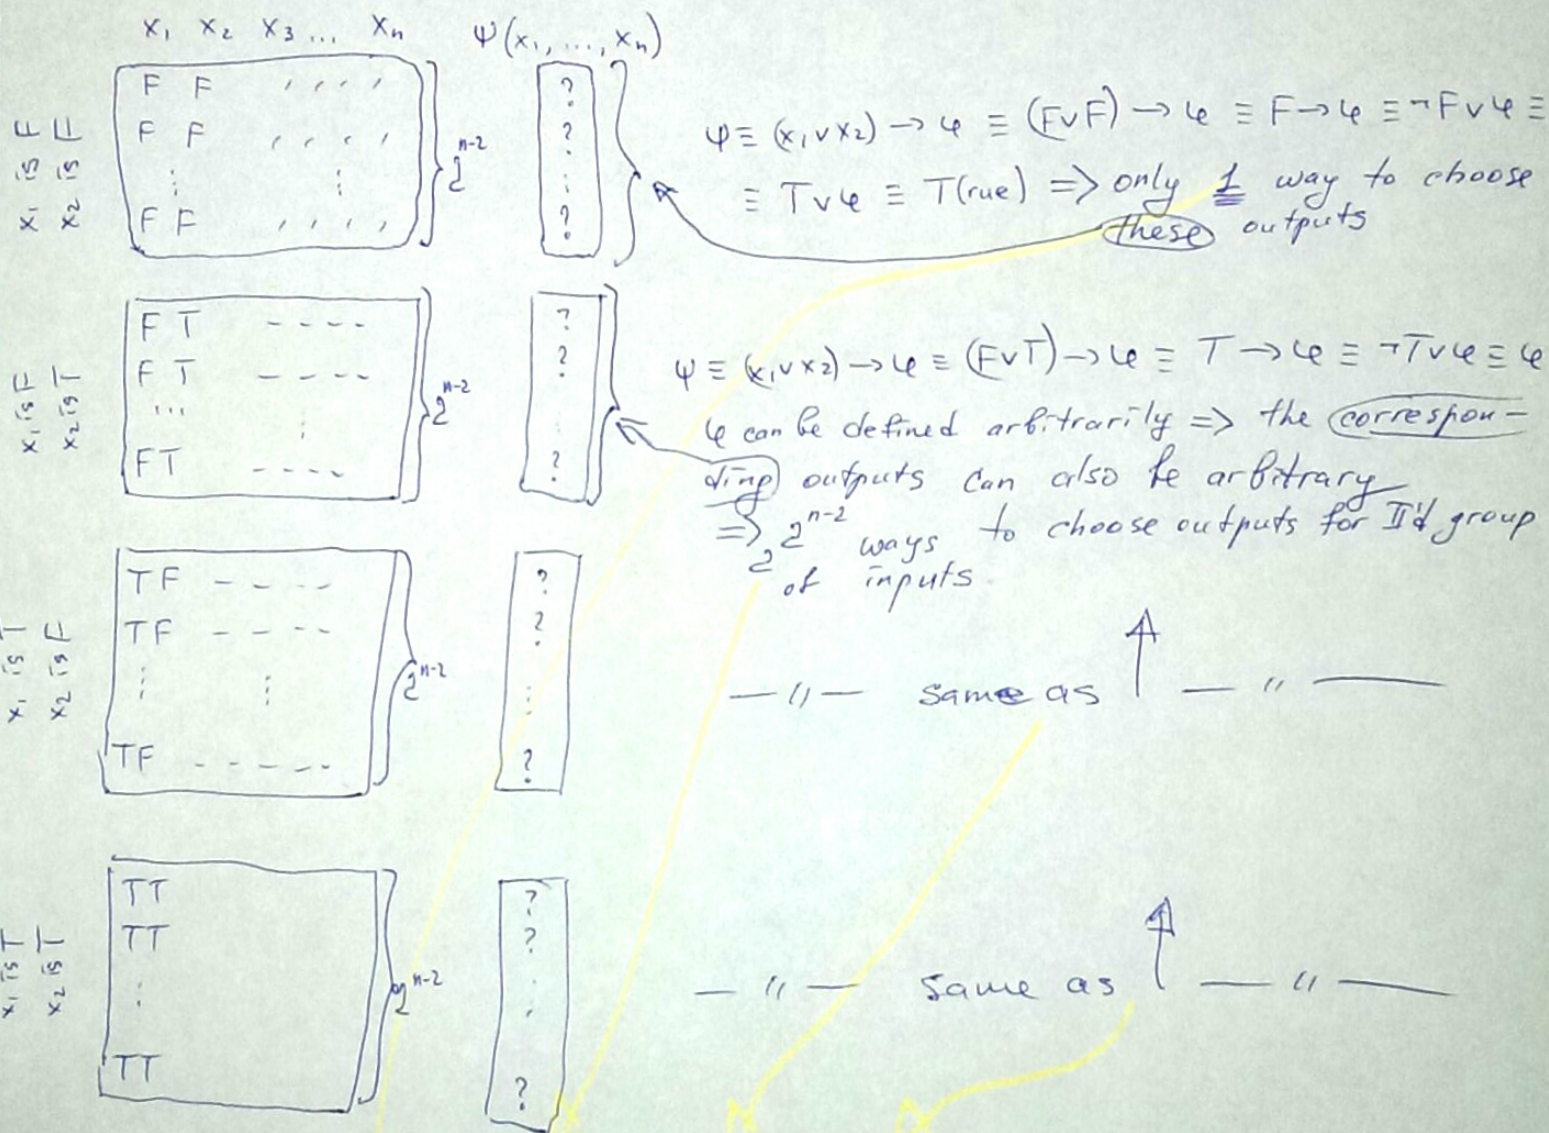 x₁ x₂ x₃ ... xₙ ψ(x₁, ..., xₙ)
x₁ is F
x₂ is F
F F , , , ,
F F , , , ,
⋮ ⋮
F F , , , ,
2ⁿ⁻²
?
?
⋮
?
ψ ≡ (x₁ ∨ x₂) → φ ≡ (F∨F) → φ ≡ F → φ ≡ ¬F∨φ ≡
≡ T∨φ ≡ T(rue) => only 1 way to choose
these outputs
x₁ is F
x₂ is T
F T - - - -
F T - - - -
... ⋮
FT - - - -
2ⁿ⁻²
?
?
⋮
?
ψ ≡ (x₁ ∨ x₂) → φ ≡ (F∨T) → φ ≡ T → φ ≡ ¬T∨φ ≡ φ
φ can be defined arbitrarily => the correspon-
ding outputs can also be arbitrary
=> 2^2ⁿ⁻² ways to choose outputs for II'd group
of inputs
x₁ is T
x₂ is F
TF - - - -
TF - - - -
⋮ ⋮
TF - - - - -
2ⁿ⁻²
?
?
⋮
?
— 〃 — same as ↑ — 〃 —
x₁ is T
x₂ is T
TT
TT
⋮
TT
2ⁿ⁻²
?
?
⋮
?
— 〃 — same as ↑ — 〃 —